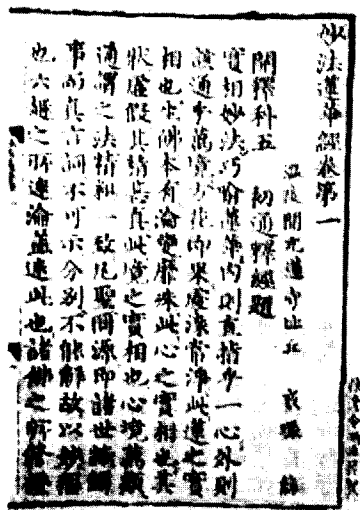 妙法蓮華經卷第一
溫陵開元蓮寺比丘 戒環 解
開釋科五 初通釋經題
實相妙法巧喻蓮華內則直指乎一心外則
該通乎萬境方花即果處染常淨此蓮之實
相也生佛本有淪變靡殊此心之實相也其
狀虛假其精甚真此境之實相也心境萬類
通謂之法精粗一致凡聖同源即諸世諦觸
事而真言詞不可示分別不能解故以妙稱
也六趣之所迷淪蓋迷此也諸佛之所修證